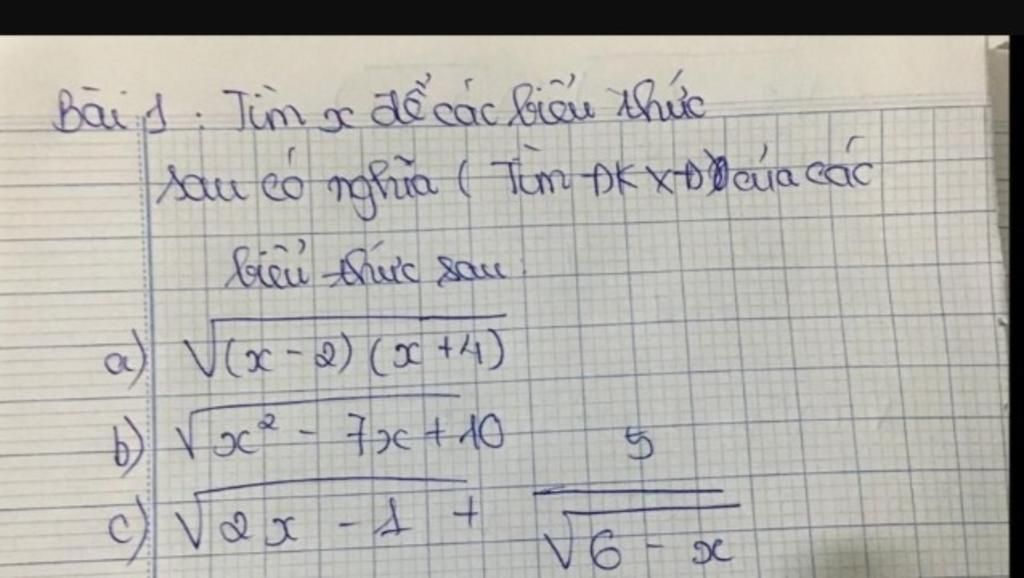 Bài 1 : Tìm x để các biểu thức
sau có nghĩa ( Tìm ĐKXĐ) của các
biểu thức sau
a) √(x - 2) (x + 4)
b) √x² - 7x + 10
c) √2x - 1 + 5/√6 - x